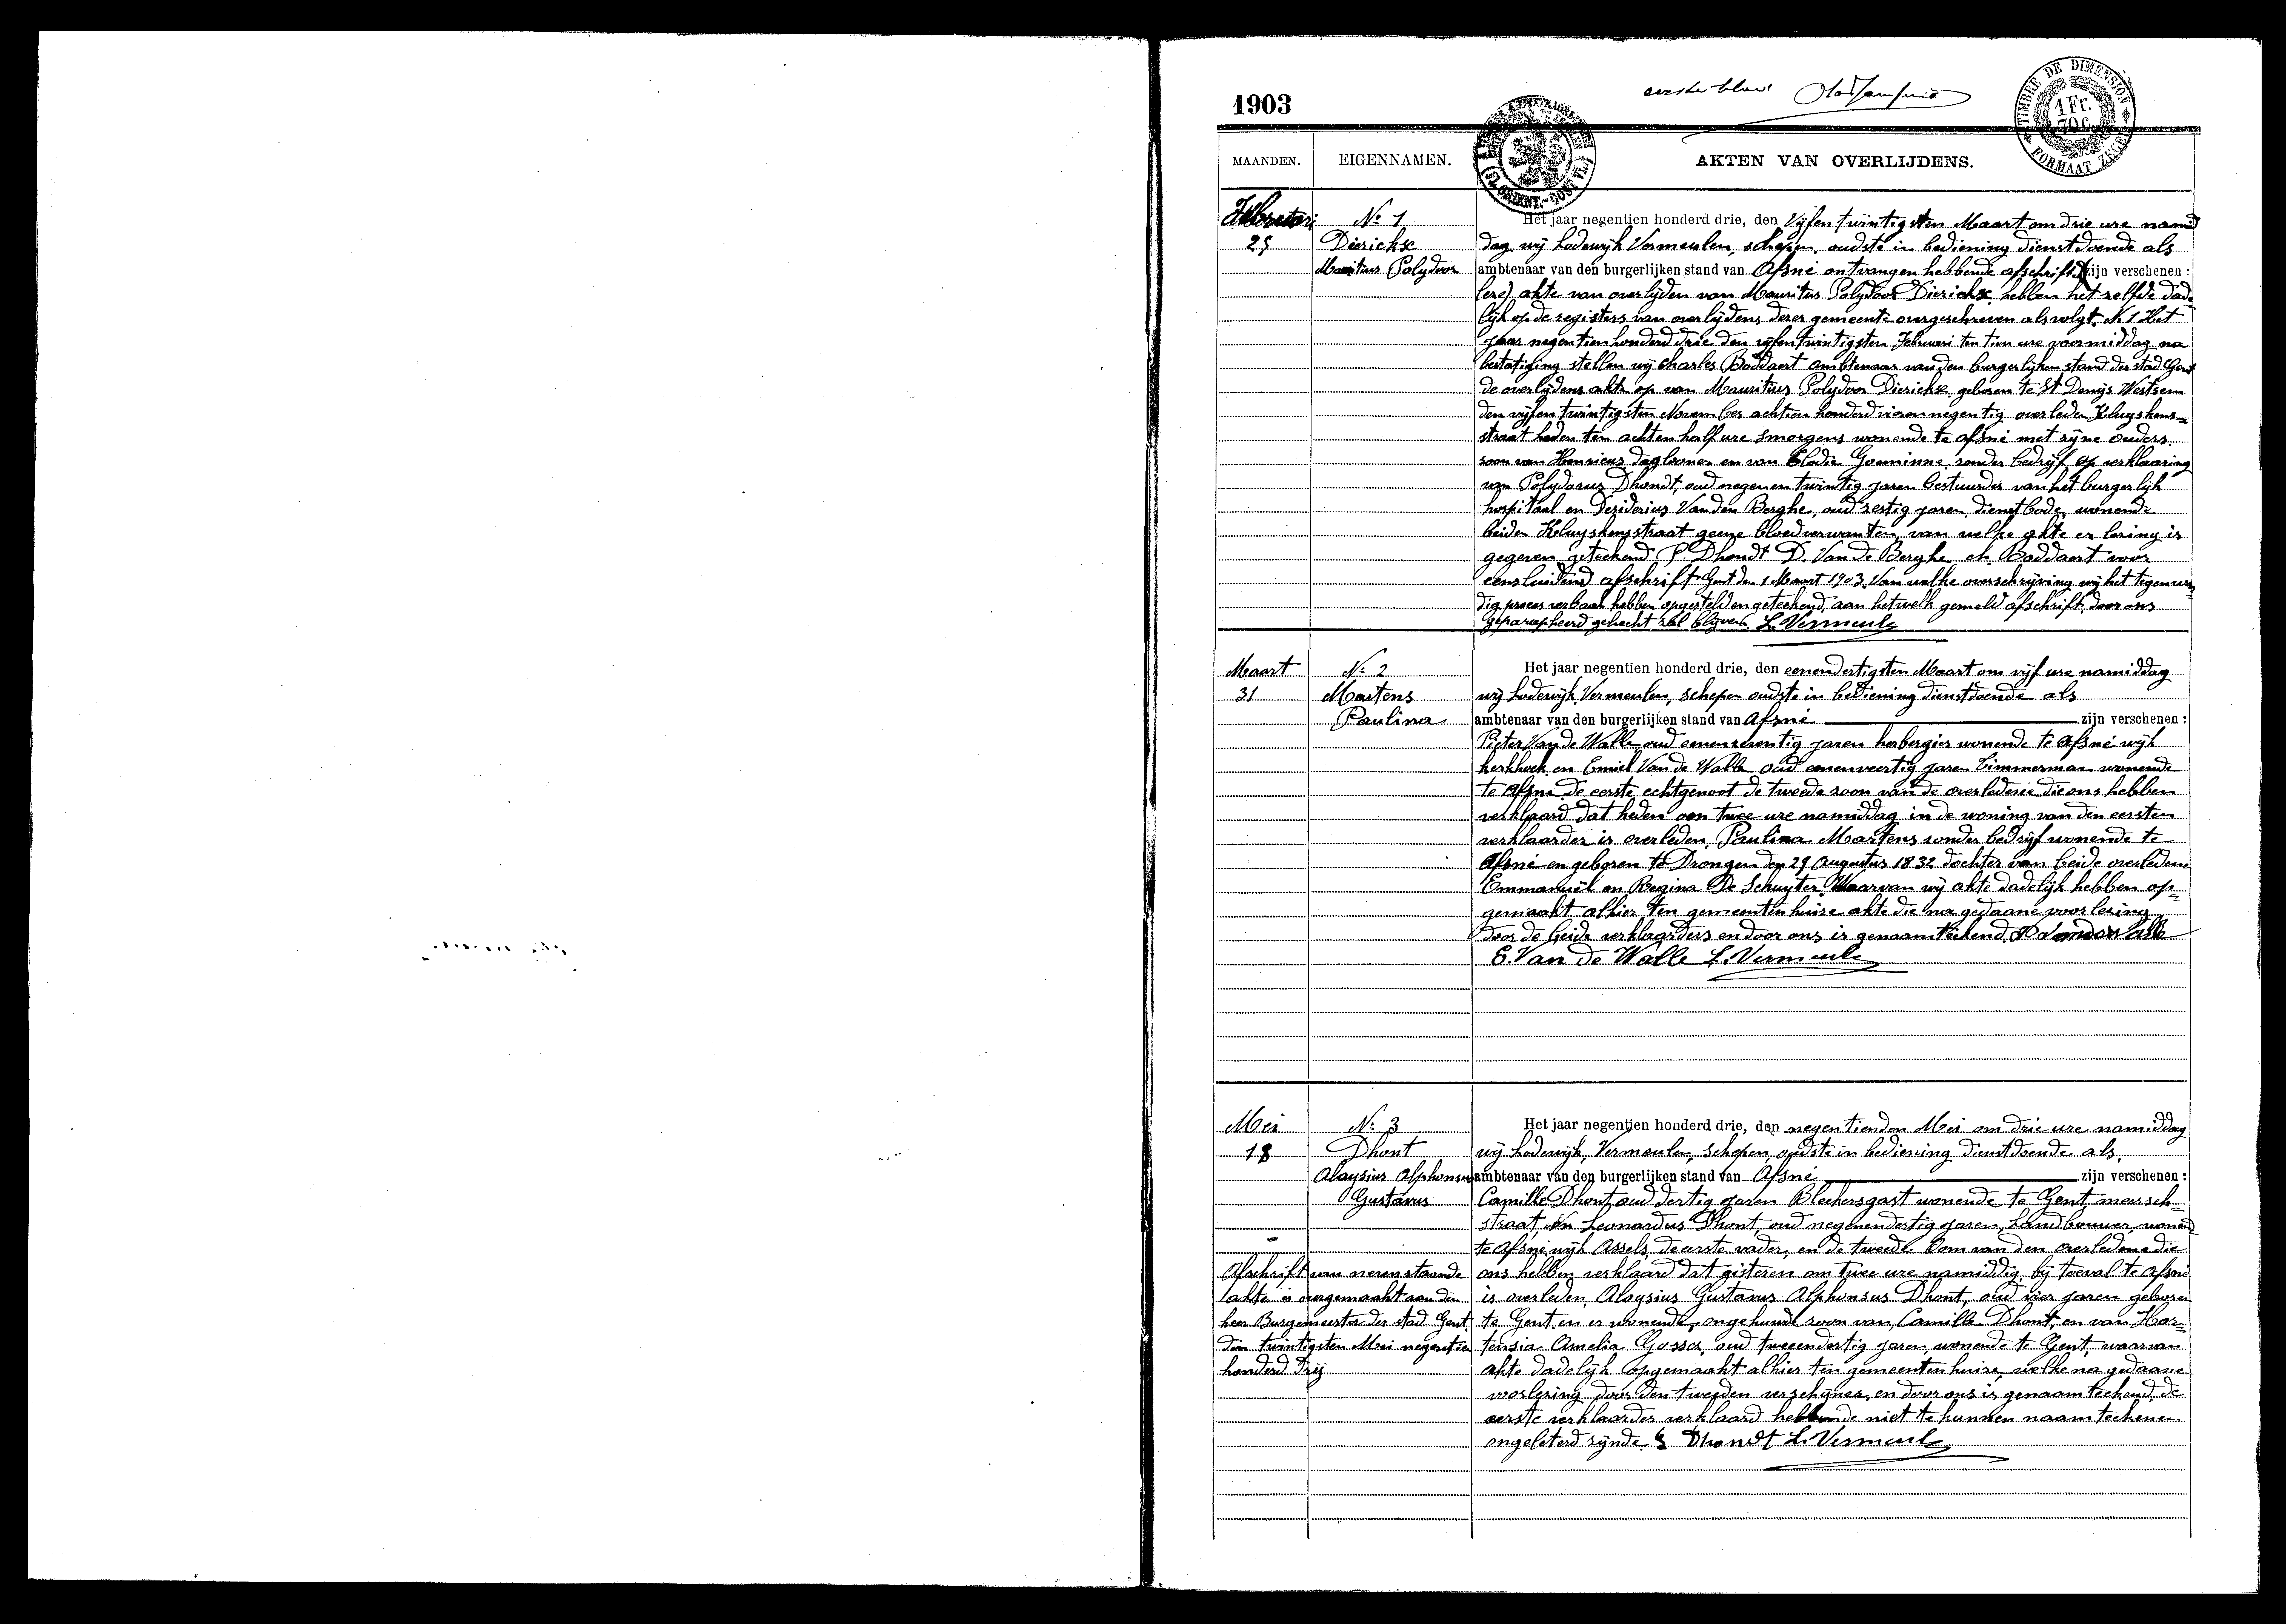 1903
eerste blad
TIMBRE DE DIMENSION
1 Fr.
70 c.
FORMAAT ZEGEL
MAANDEN. EIGENNAMEN. AKTEN VAN OVERLIJDENS.
Februari
25
N: 1
Dierickx
Mauritius Polydoor
Het jaar negentien honderd drie, den Vijfentwintigsten Maart om drie ure namid
dag wij Lodewijk Vermeulen, schepen, oudste in bediening dienstdoende als
ambtenaar van den burgerlijken stand van Afsné ontvangen hebbende afschrift zijn verschenen :
akte van overlijden van Mauritus Polydoor Dierickx hebben het zelfde dade
lijk op de registers van overlijdens dezer gemeente overgeschreven als volgt. N 1 Het
jaar negentien honderd drie den vijfentwintigsten Februari ten tien ure voormiddag na
bestatiging stellen wij Charles Boddaert ambtenaar van den burgerlijken stand der stad Gent
de overlijdens akte op van Mauritius Polydoor Dierickx geboren te St Denijs Westrem
den vijfentwintigsten November achttien honderd vierennegentig overleden Kluyskens=
straat heden ten achten half ure smorgens wonende te afsné met zijne ouders
zoon van Henricus, daglooner en van Elodie Goeminne zonder bedrijf, op verklaaring
van Polydorus Dhondt, oud negenentwintig jaren bestuurder van het burgerlijk
hospitaal en Desiderius Vanden Berghe, oud zestig jaren dienstbode, wonende
beiden Kluyskensstraat geene bloedverwanten, van welke akte er lezing is
gegeven, geteekend P. Dhondt D. Van de Berghe ch Boddaert voor
eensluidend afschrift Gent den 1 Maart 1903. Van welke overschrijving wij het tegenwoor=
dig proces verbaal hebben opgesteld en geteekend, aan hetwelk gemeld afschrift door ons
geparapheerd gehecht zal blijven L. Vermeule
Maart
31
N: 2
Martens
Paulina
Het jaar negentien honderd drie, den eenendertigsten Maart om vijf ure namiddag
wij Lodewijk Vermeulen, schepen oudste in bediening dienstdoende als
ambtenaar van den burgerlijken stand van Afsné zijn verschenen :
Pieter Van de Walle oud eenenzeventig jaren herbergier wonende te Afsné wijk
kerkhoek en Emiel Van de Walle oud eenenveertig jaren Timmerman wonende
te Afsné de eerste echtgenoot de tweede zoon van de overledene die ons hebben
verklaard dat heden om twee ure namiddag in de woning van den eersten
verklaarder is overleden, Paulina Martens zonder bedrijf wonende te
Afsné en geboren te Drongen den 29 Augustus 1832 dochter van beide overledene
Emmanuël en Regina De Schuyter. Waarvan wij akte dadelijk hebben op=
gemaakt alhier ten gemeentenhuize akte die na gedaane voorlezing
door de beide verklaarders en door ons is genaamteekend. P Vandewalle
E. Van de Walle L. Vermeule
Mei
18
N: 3
Dhont
Aloysius Alphonsus
Gustavus
Het jaar negentien honderd drie, den negentienden Mei om drie ure namiddag
wij Lodewijk, Vermeulen, schepen, oudste in bediening dienstdoende als
ambtenaar van den burgerlijken stand van Afsné zijn verschenen :
Camille Dhont, oud dertig jaren Bleekersgast wonende te Gent, meersch=
straat, en Leonardus Dhont, oud negenendertig jaren, Landbouwer, wonend
te Afsné wijk Assels, de eerste vader, en de tweede Oom van den overledene die
ons hebben verklaard dat gisteren om twee ure namiddig, bij toeval te Afsné
is overleden, Aloysius Gustavus Alphonsus Dhont, oud vier jaren geboren
te Gent en er wonende, ongehuwd zoon van, Camille Dhont, en van Hor=
tensia Amelia Gosses, oud tweeendertig jaren, wonende te Gent, waarvan
akte dadelijk opgemaakt alhier ten gemeentenhuize, welke na gedaane
voorlezing door den tweeden verschijner, en door ons is genaamteekend, de
eerste verklaarder verklaard hebbende niet te kunnen naamteekenen
ongeleterd zijnde. Dhondt L. Vermeule
Afschrift van nevenstaande
akte is overgemaakt aan den
heer Burgemeester der stad Gent
den twintigsten Mei negentien
honderd drij